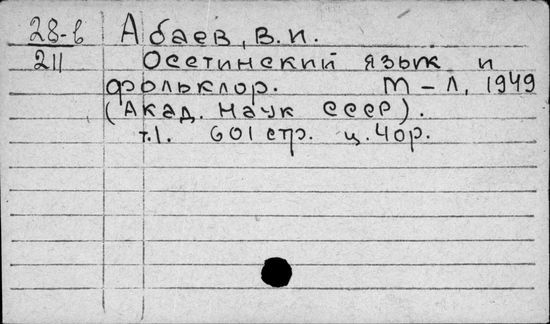 28-в Абаев, В.И.
211 Осетинский язык и
фольклор. М-Л, 1949
(Акад. наук СССР).
т.1. 601 стр. ц. 40р.